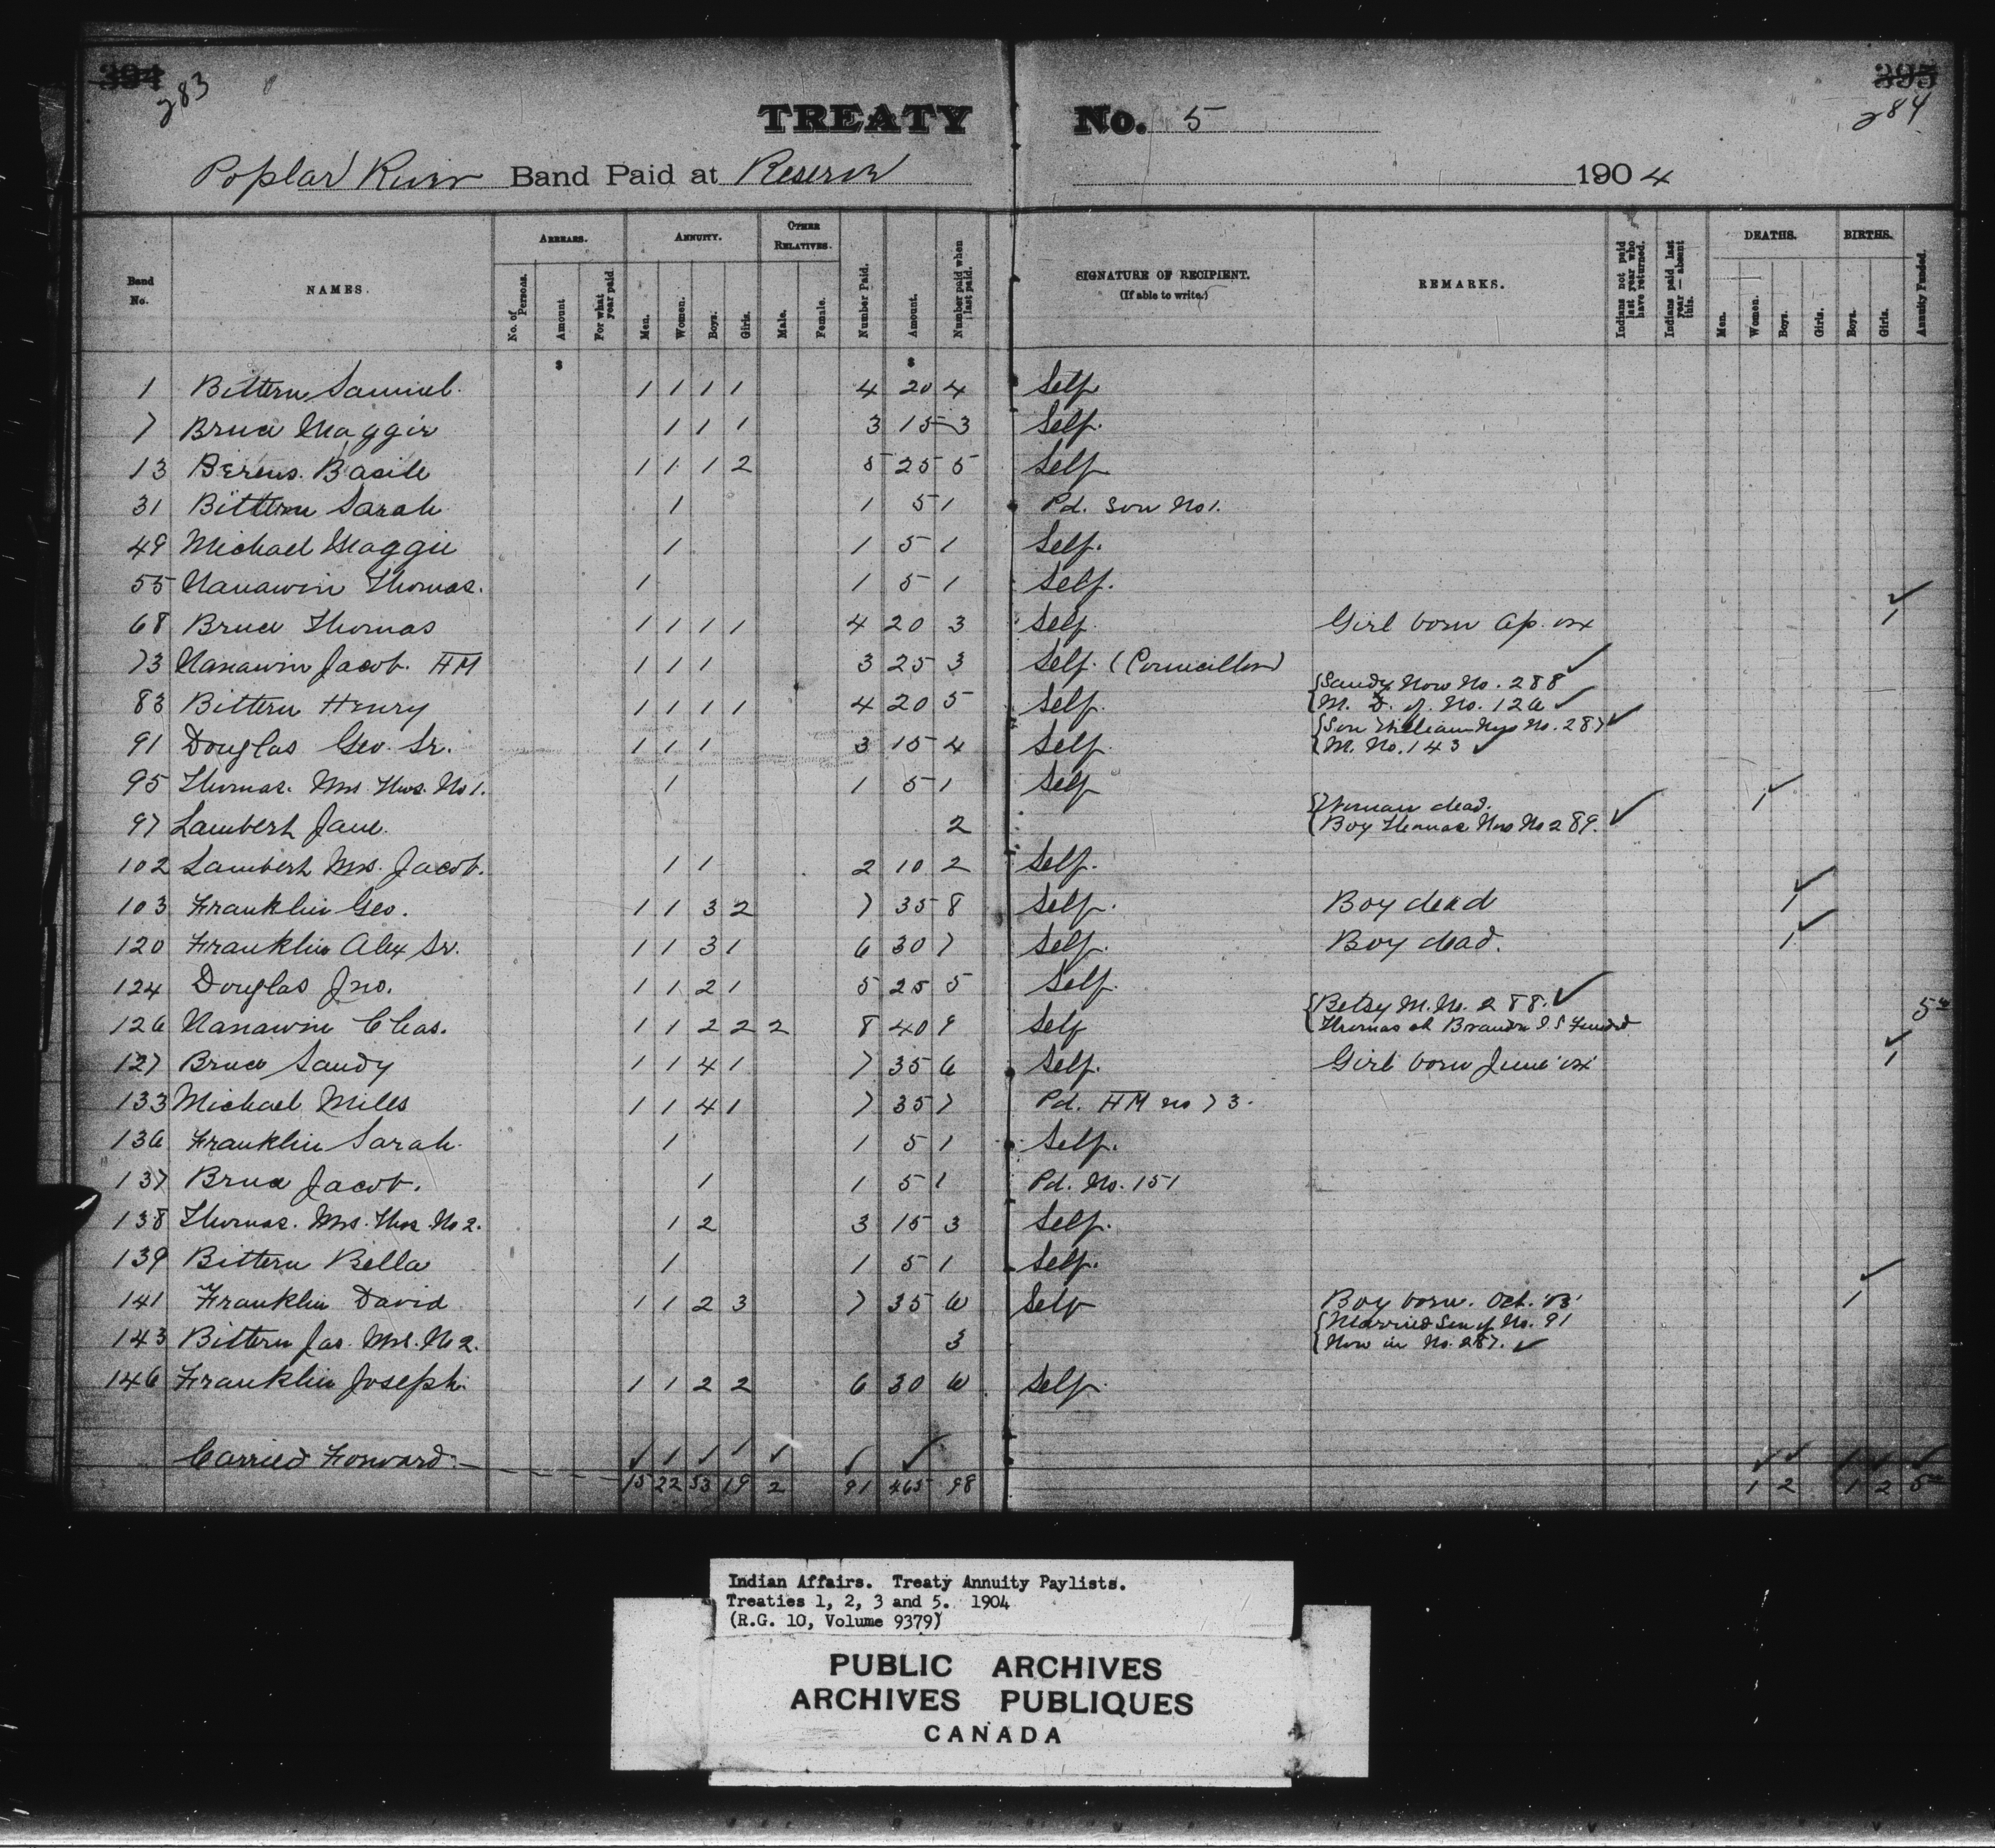 394 395
283 284
TREATY No. 5
Poplar River Band Paid at Reserve 1904
Band No. NAMES. ARREARS. No. of Persons. Amount For what year paid. ANNUITY. Men. Women. Boys. Girls. OTHER RELATIVES. Male. Female. Number Paid. Amount. Number paid when last paid. SIGNATURE OF RECIPIENT. (If able to write.) REMARKS. Indians not paid last year who have returned. Indians paid last year — absent this. DEATHS. Men. Women. Boys. Girls. BIRTHS. Boys. Girls. Annuity Funded.
$ $
1 Bittern, Samuel. 1 1 1 1 4 20 4 Self
7 Bruce Maggie 1 1 1 3 15 3 Self.
13 Berens. Basile 1 1 1 2 5 25 5 Self
31 Bittern Sarah 1 1 5 1 Pd. Son No 1.
49 Michael Maggie 1 1 5 1 Self.
55 Nanawin Thomas. 1 1 5 1 Self.
68 Bruce Thomas 1 1 1 1 4 20 3 Self. Girl born Ap. 04 1
73 Nanawin Jacob. HM 1 1 1 3 25 3 Self. (Councillor)
83 Bittern Henry 1 1 1 1 4 20 5 Self. {Sandy Now No. 288
{M. D. of. No. 126
91 Douglas Geo. Sr. 1 1 1 3 15 4 Self. {Son William Now No. 287
{M. No. 143
95 Thomas. Mrs Thos. No 1. 1 1 5 1 Self
97 Lambert Jane. 2 {Woman dead. 1
{Boy Thomas Now No 289.
102 Lambert Mrs. Jacob. 1 1 2 10 2 Self.
103 Franklin Geo. 1 1 3 2 7 35 8 Self. Boy dead 1
120 Franklin Alex Sr. 1 1 3 1 6 30 7 Self. Boy dead. 1
124 Douglas Jno. 1 1 2 1 5 25 5 Self.
126 Nanawin Chas. 1 1 2 2 2 8 40 9 Self {Betsy M. No. 288. 5 00
{Thomas at Brandon I.S Funded
127 Bruce Sandy 1 1 4 1 7 35 6 Self. Girl born June '04 1
133 Michael Miles 1 1 4 1 7 35 7 Pd. HM no 73.
136 Franklin Sarah 1 1 5 1 Self.
137 Bruce Jacob. 1 1 5 1 Pd. No. 151
138 Thomas. Mrs. Thos. No 2. 1 2 3 15 3 Self.
139 Bittern Bella 1 1 5 1 Self.
141 Franklin David 1 1 2 3 7 35 6 Self Boy born. Oct. '03' 1
143 Bittern Jas. Mrs. No 2. 3 {Married Son of No. 91
{Now in No. 287.
146 Franklin Joseph. 1 1 2 2 6 30 6 Self.
Carried Forward.
15 22 33 19 2 91 465 98 1 2 1 2 5 00
Indian Affairs. Treaty Annuity Paylists.
Treaties 1, 2, 3 and 5. 1904
(R.G. 10, Volume 9379)
PUBLIC ARCHIVES
ARCHIVES PUBLIQUES
CANADA